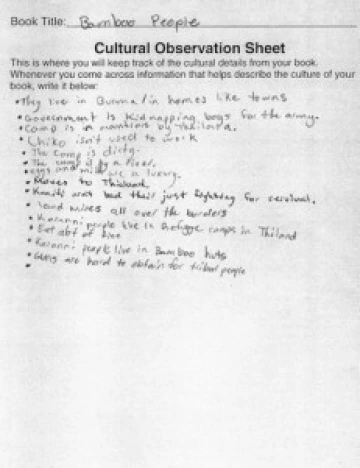 Book Title: Bamboo People
Cultural Observation Sheet
This is where you will keep track of the cultural details from your book.
Whenever you come across information that helps describe the culture of your
book, write it below:
• They live in Burma/in homes like towns
• Government is kidnapping boys for the army.
• Camp is in mountains by Thailand.
• Chiko isn't used to work
• The Camp is dirty.
• The camp is by a river.
• eggs and milk are a luxury.
• Moves to Thialand.
• aren't bad their just fighting for survival.
• land mines all over the borders
• Karenni people live in Refugee camps in Thiland
• Eat alot of rice
• Karenni people live in Bamboo huts
• Guns are hard to obtain for tribal people
•